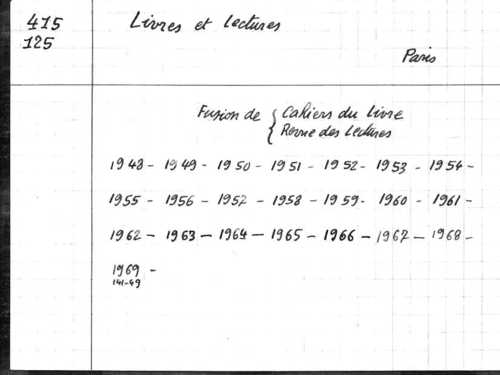 415
125
Livres et lectures
Paris
Fusion de { Cahiers du Livre
{ Revue des Lectures
1948 - 1949 - 1950 - 1951 - 1952 - 1953 - 1954 -
1955 - 1956 - 1957 - 1958 - 1959 - 1960 - 1961 -
1962 - 1963 - 1964 - 1965 - 1966 - 1967 - 1968 -
1969 -
141-49